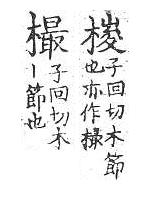 子回切木節
也亦作
樶
子回切木
丨節也